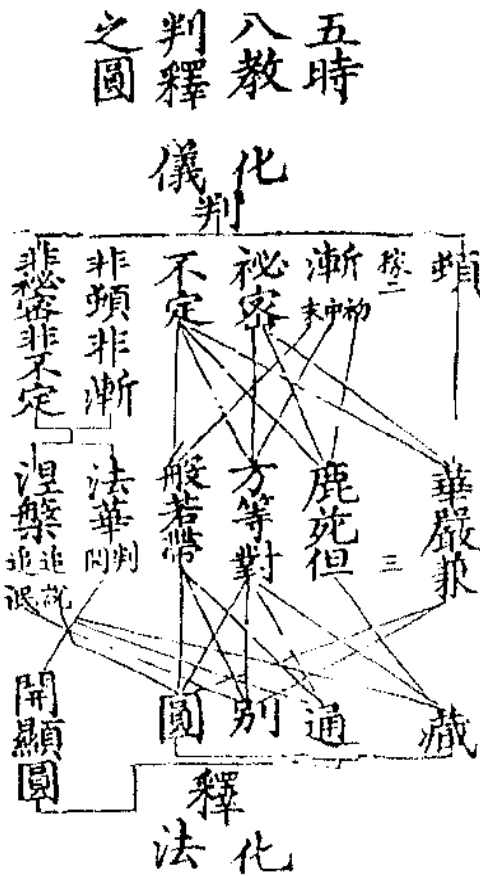 五時
八教
判釋
之圖
化儀
判
頓
據二
漸初中末
祕密
不定
非頓非漸
非秘密非不定
華嚴兼
三
鹿苑但
方等對
般若帶
法華判開
涅槃追說追泯
藏
通
別
圓
開顯圓
釋
化法